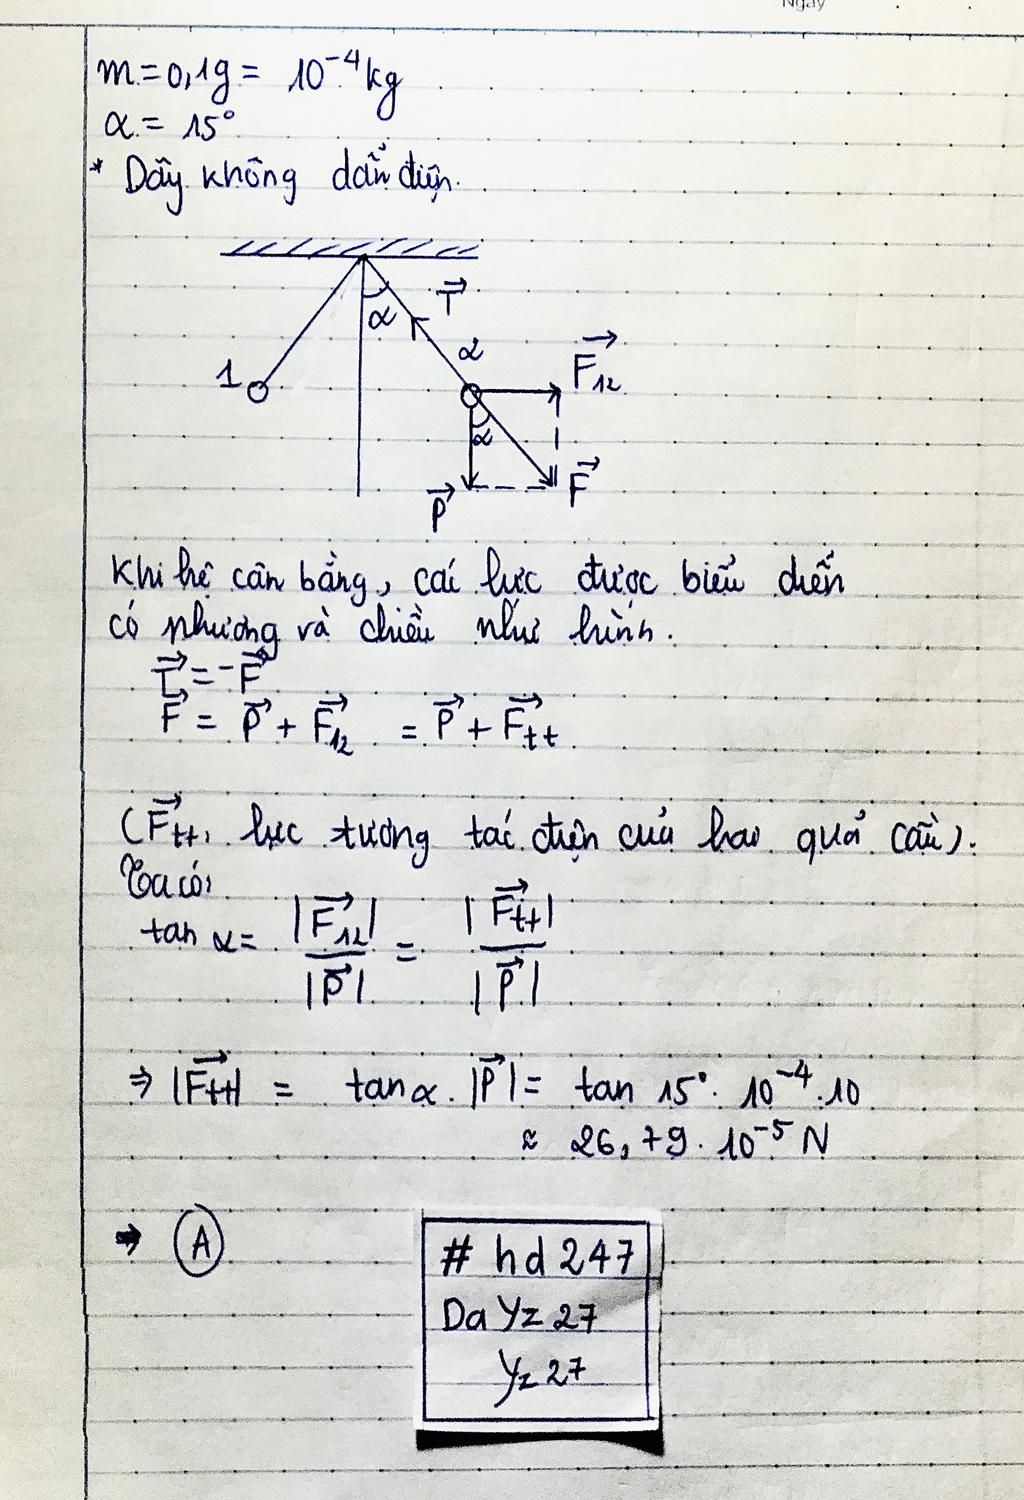 Ngày
m = 0,1g = 10⁻⁴ kg
α = 15°
* Dây không dẫn điện.
α
T⃗
α
1
F⃗₁₂
α
P⃗
F⃗
Khi hệ cân bằng, các lực được biểu diễn
có phương và chiều như hình.
T⃗ = -F⃗
F⃗ = P⃗ + F⃗₁₂ = P⃗ + F⃗tt
(F⃗tt, lực tương tác điện của hai quả cầu).
Ta có:
tan α = |F⃗₁₂| / |P⃗| = |F⃗tt| / |P⃗|
⇒ |F⃗tt| = tan α . |P⃗| = tan 15° . 10⁻⁴ . 10
≈ 26,79 . 10⁻⁵ N
➡ A
# hd 247
Da Yz 27
Yz 27